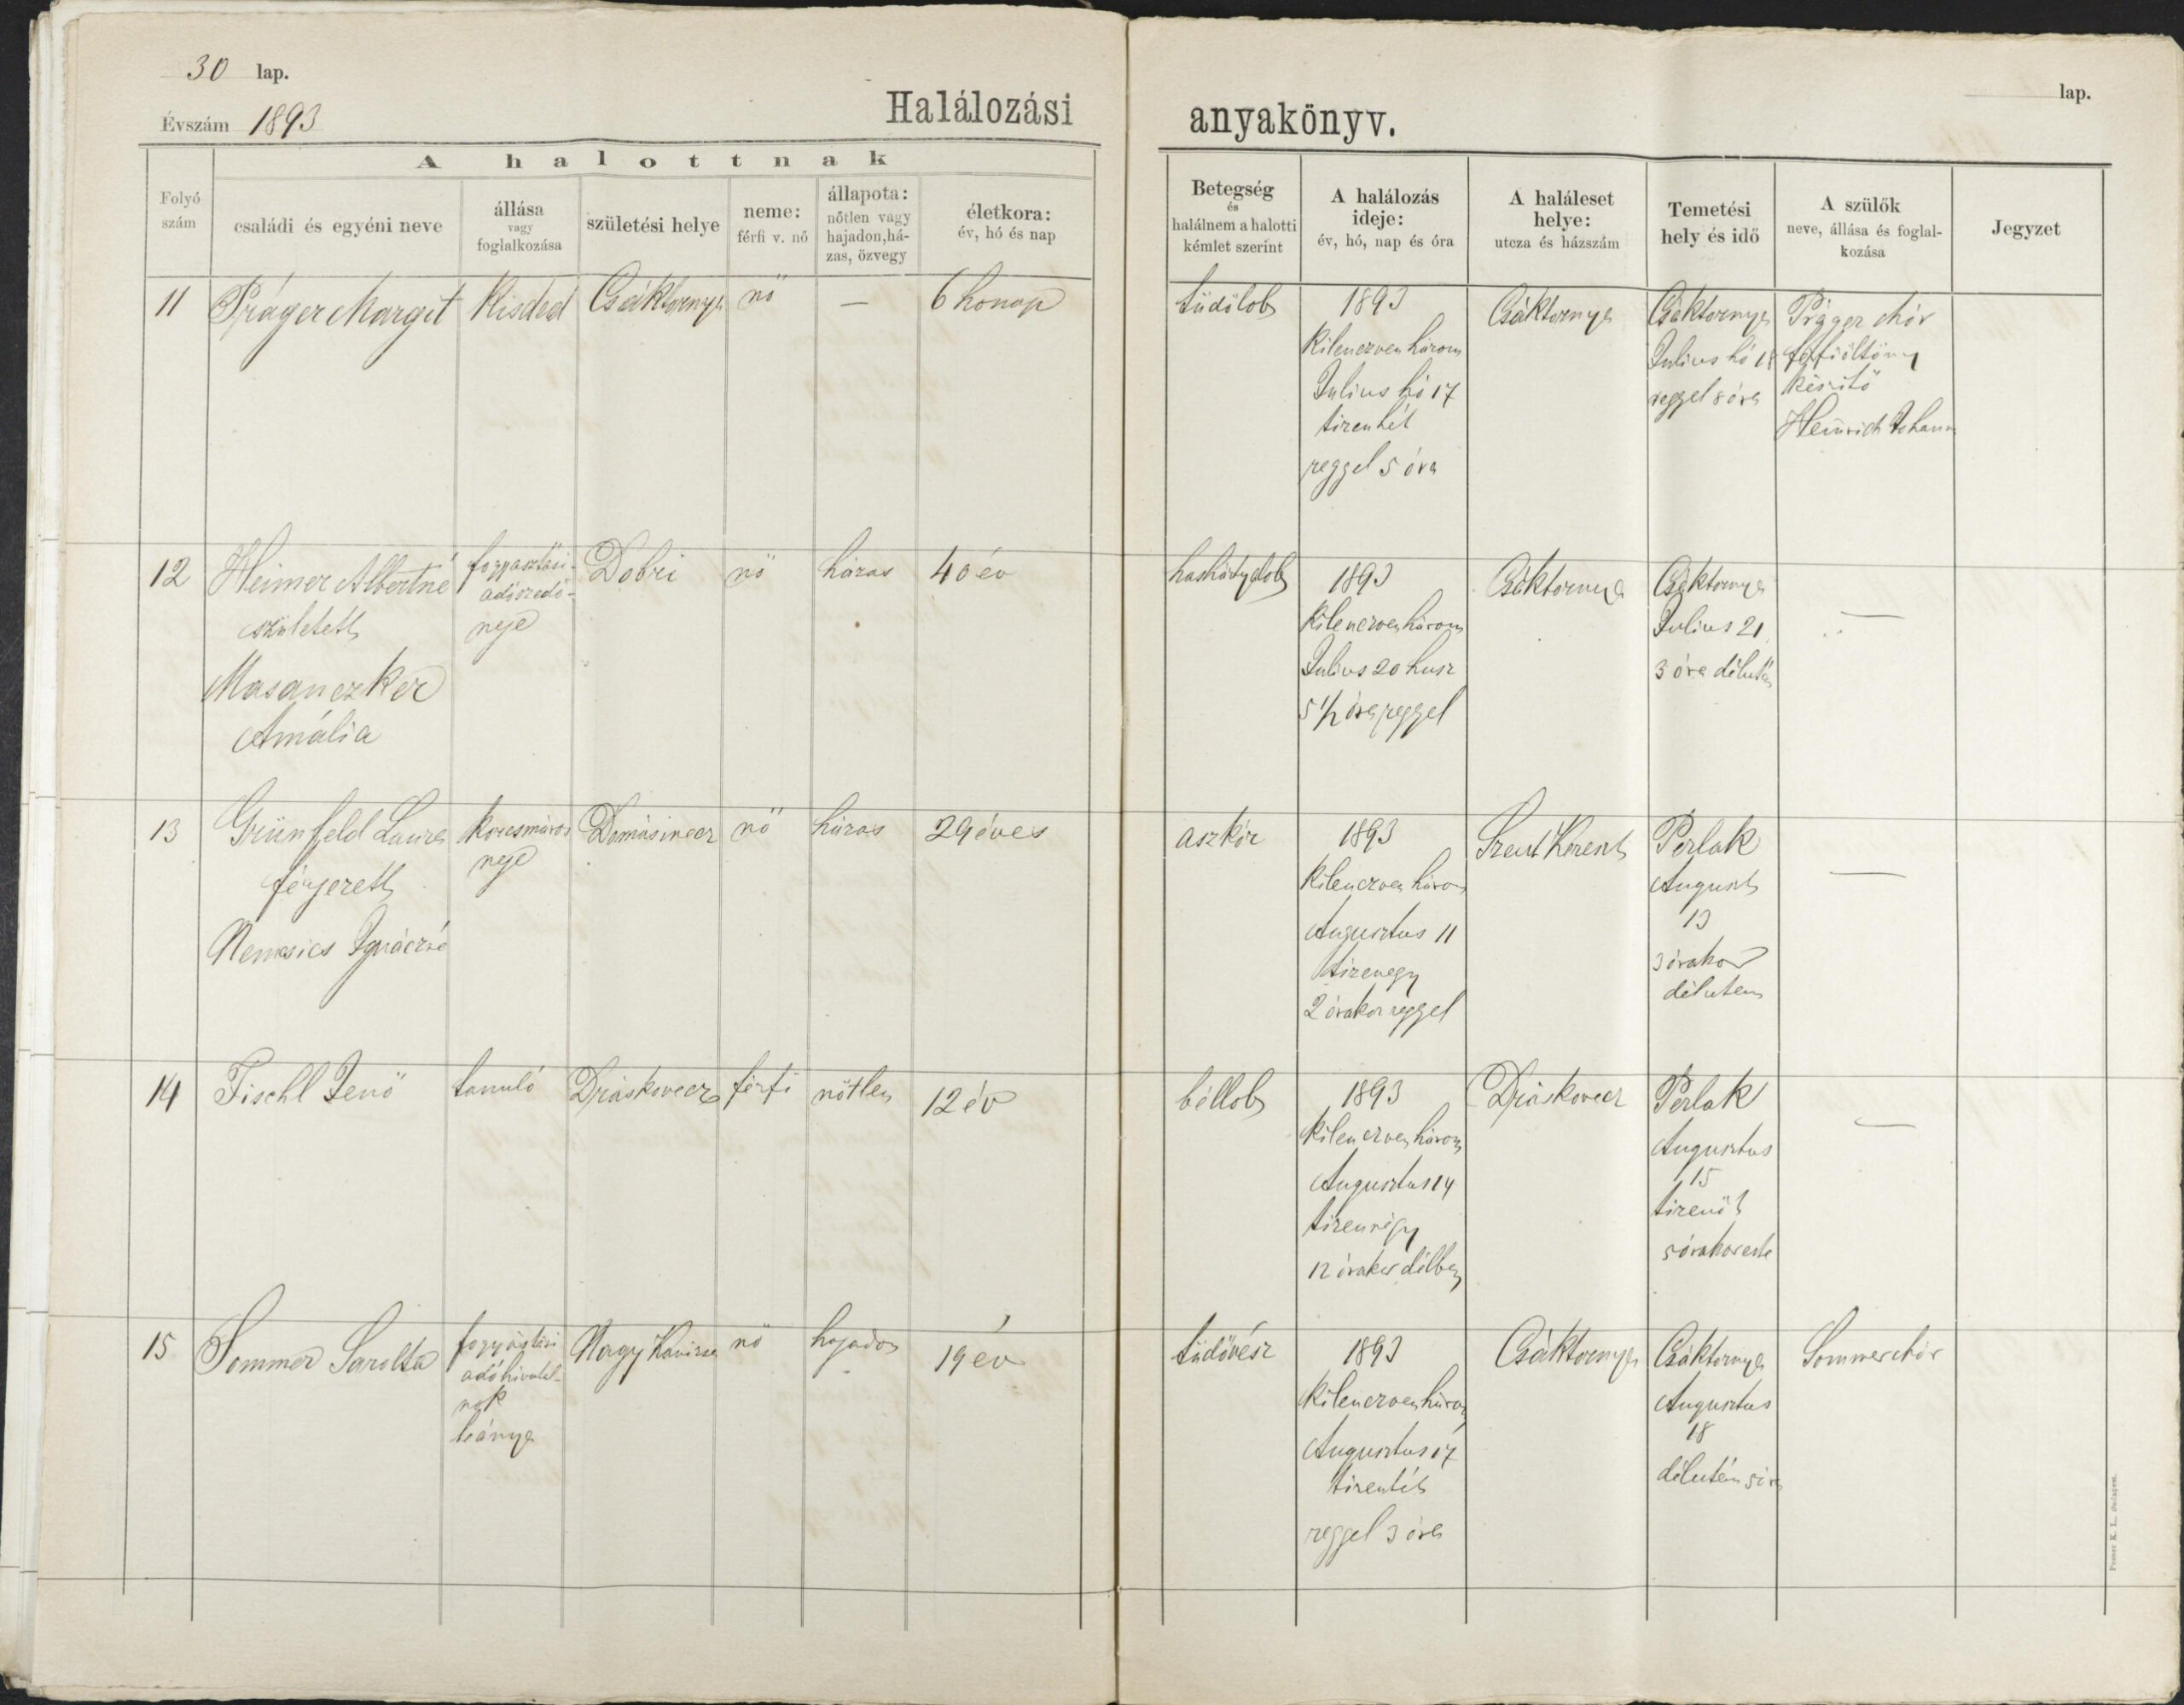 30 lap.
Évszám 1893
Halálozási anyakönyv.
lap.
A halottnak
Folyó szám
családi és egyéni neve
állása vagy foglalkozása
születési helye
neme: férfi v. nő
állapota: nőtlen vagy hajadon, há-zas, özvegy
életkora: év, hó és nap
Betegség és halálnem a halotti kémlet szerint
A halálozás ideje: év, hó, nap és óra
A haláleset helye: utcza és házszám
Temetési hely és idő
A szülők neve, állása és foglal-kozása
Jegyzet
11
Práger Margit
Kisded
Csáktornya
nő
—
6 honap
tüdőlob
1893
Kilenczven három
Julius hó 17
tizenhét
reggel 5 óra
Csáktornya
Csáktornya
Julius hó 18
reggel 8 óra
Práger Mór
férfiöltöny
készitő
Heinrich Johanna
12
Heimer Albertné
született
Masanczker
Amália
fogyasztási-
adószedő-
neje
Dobri
nő
házas
40 év
hashártyalob
1893
Kilenczven három
Julius 20 husz
5 1/2 óra reggel
Csáktornya
Csáktornya
Julius 21
3 óra délután
—
13
Grünfeld Laura
férjezett
Nemsics Ignáczné
korcsmáros
neje
Damásinecz
nő
házas
29 éves
aszkór
1893
Kilenczven három
Augusztus 11
tizenegy
2 órakor reggel
Szent Kereszt
Perlak
August
13
3 órakor
délutan
—
14
Fischl Jenö
tanuló
Dráskovecz
férfi
nőtlen
12 év
béllob
1893
Kilenczven három
Augusztus 14
tizennégy
12 órakor délben
Dráskovecz
Perlak
Augusztus
15
tizenöt
5 órakor este
—
15
Sommer Sarolta
fogyasztási
adóhivatal-
nok
leánya
Nagy Kanizsa
nő
hajadon
19 év
tüdővész
1893
Kilenczven három
Augusztus 17
tizenhét
reggel 3 óra
Csáktornya
Csáktornya
Augusztus
18
délután 5 óra
Sommer Mór